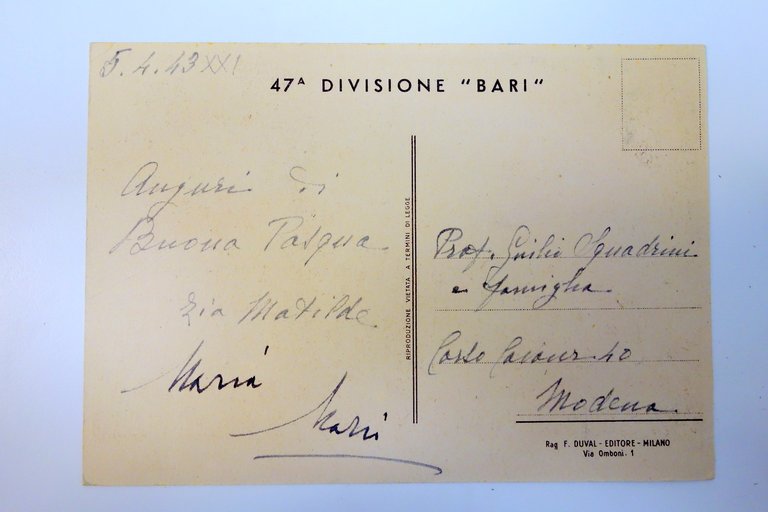 5.4.43 XXI
47ᴬ DIVISIONE "BARI"
Auguri di
Buona Pasqua
zia Matilde
Maria
RIPRODUZIONE VIETATA A TERMINI DI LEGGE
Prof. Guilio Squadrini
e famiglia
Corso Cavour 40
Modena
Rag F. DUVAL - EDITORE - MILANO
Via Omboni, 1